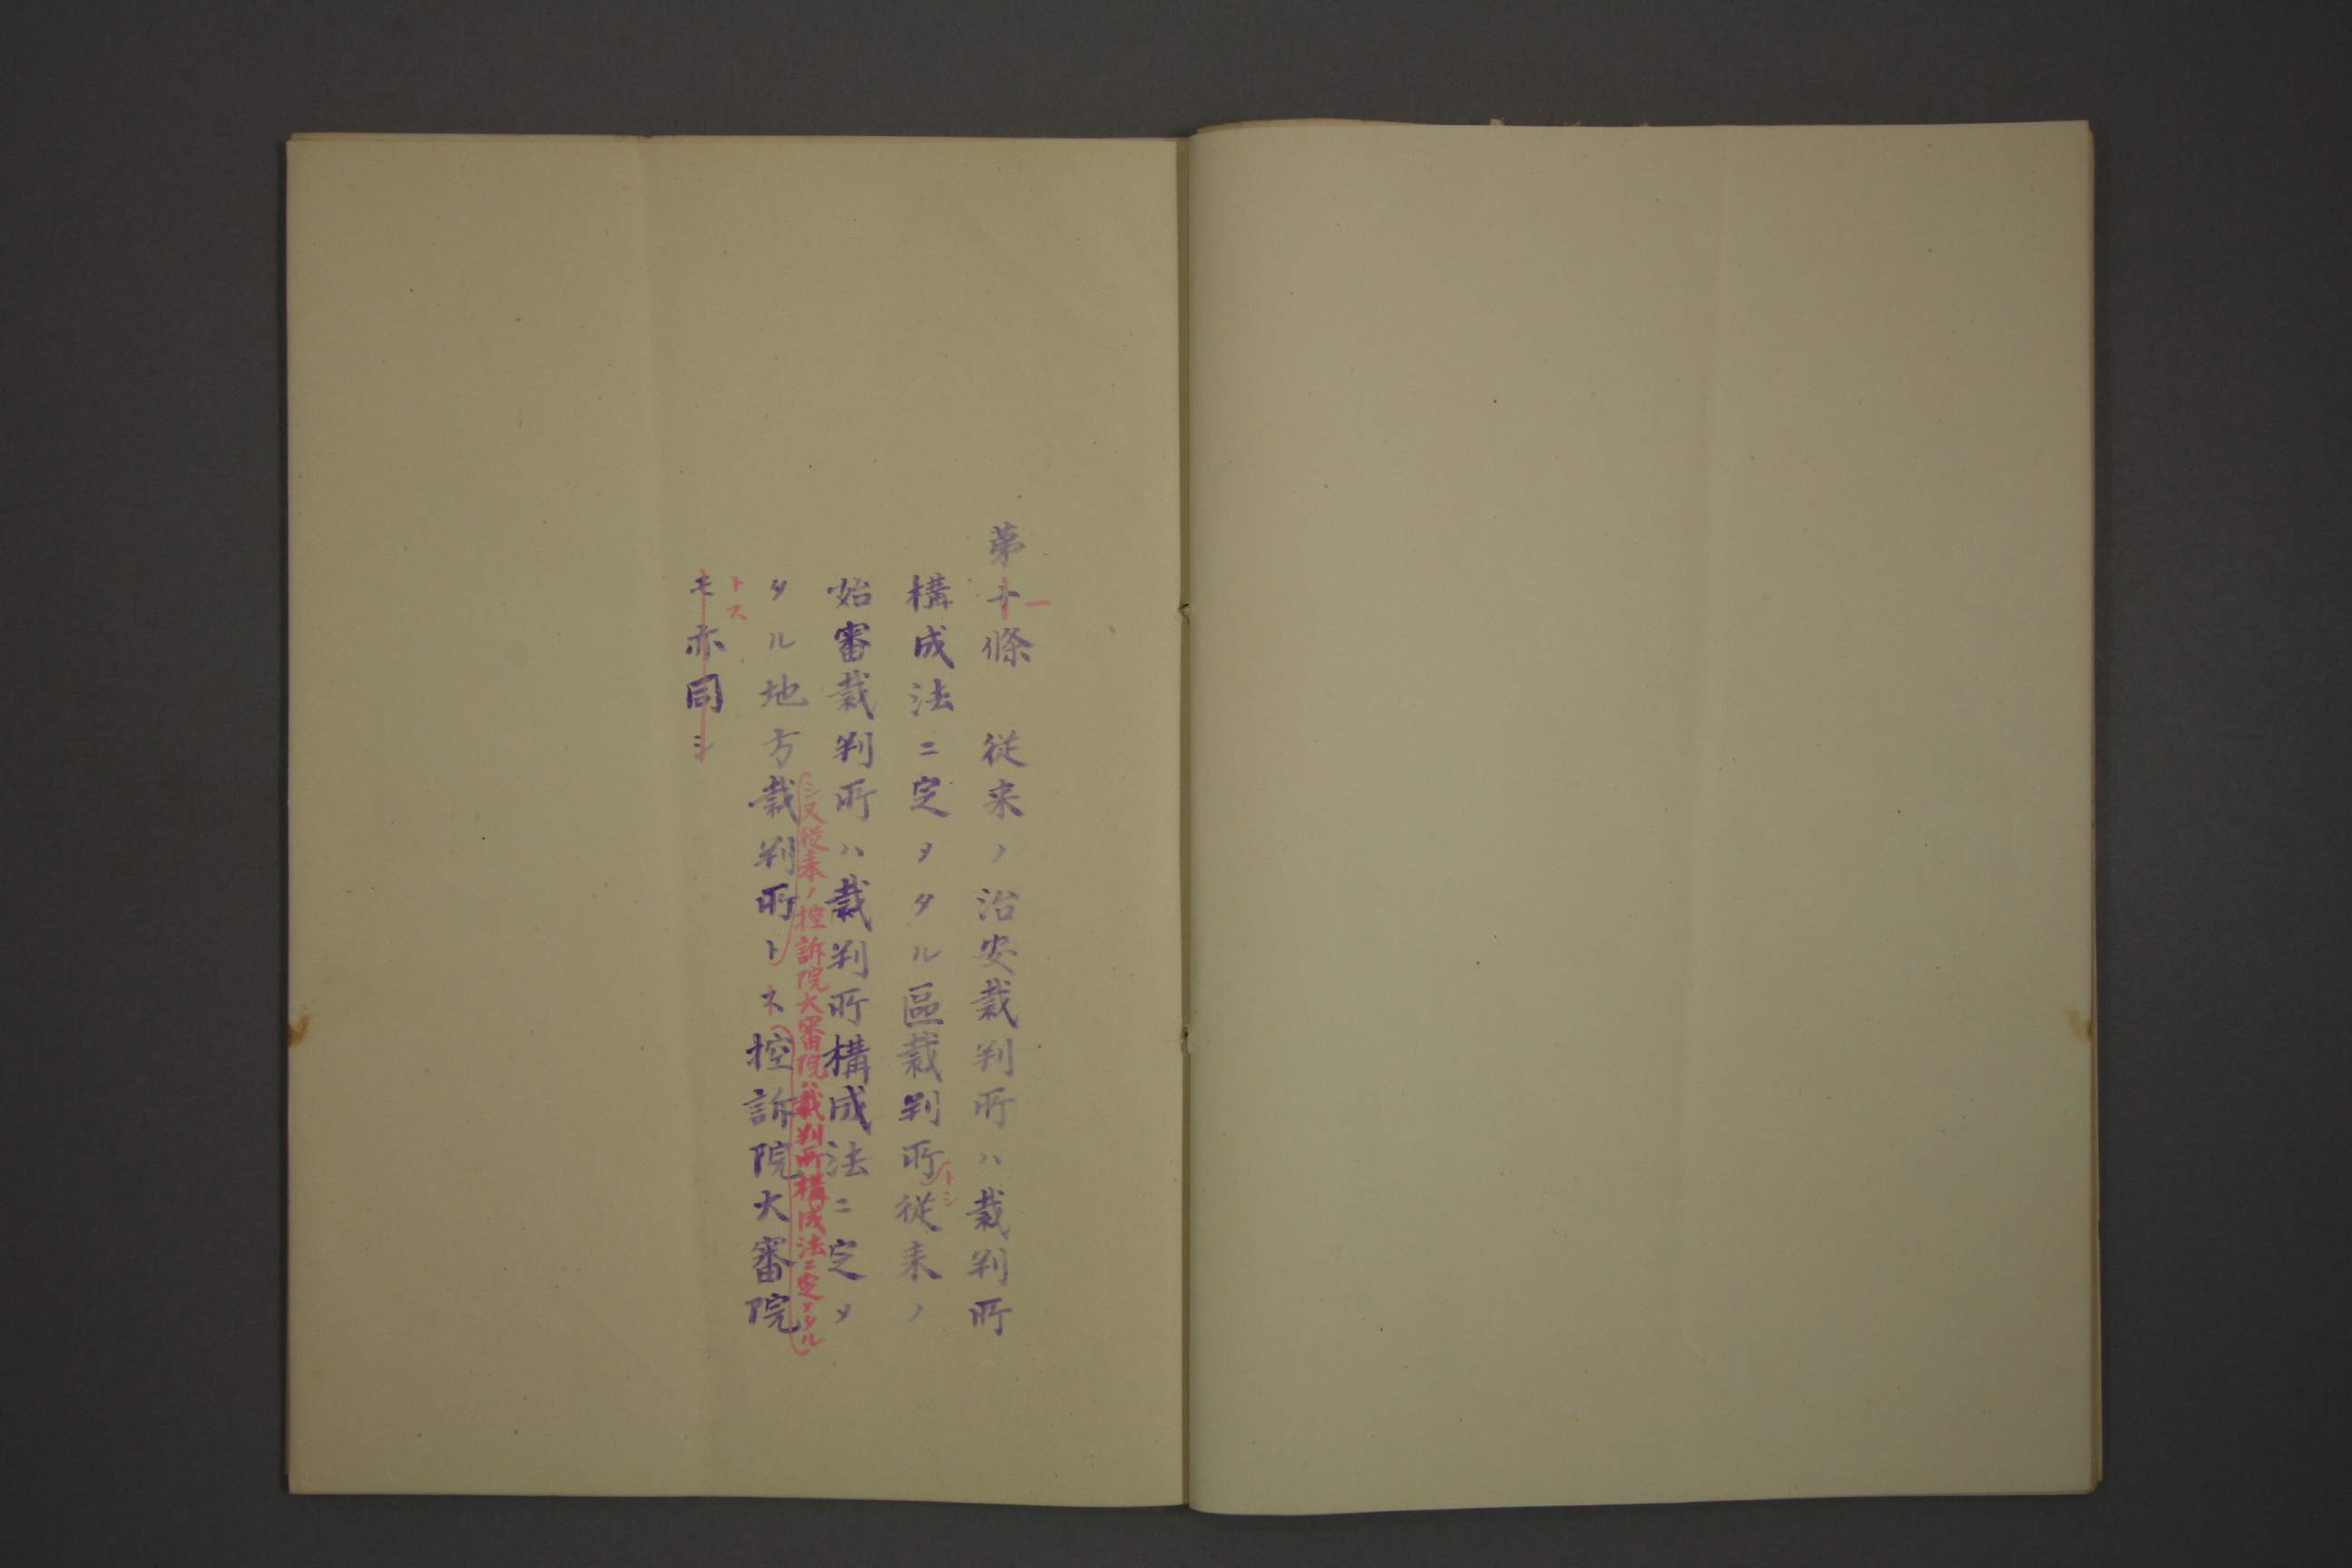 第十條 従来ノ治安裁判所ハ裁判所
一
構成法ニ定メタル區裁判所従来ノ
トシ
始審裁判所ハ裁判所構成法ニ定メ
タル地方裁判所トス控訴院大審院
シ又従来ノ控訴院大審院ハ裁判所構成法ニ定メタル
モ亦同シ
トス